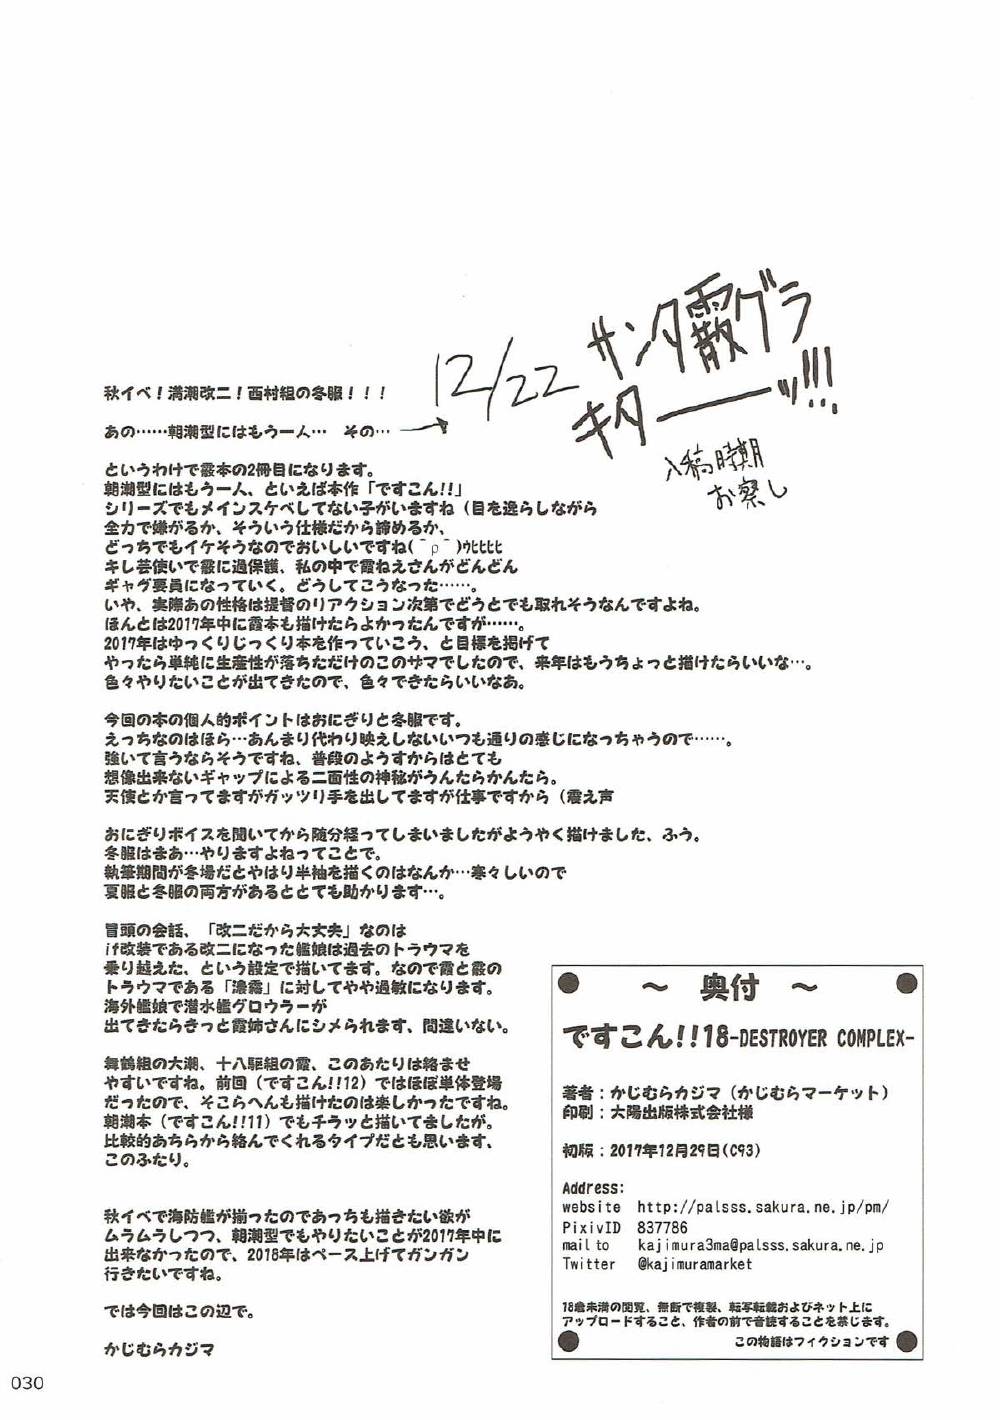 12/22 サンタ霰グラ
キターーッ!!!
入稿時期
お察し
秋イベ！満潮改二！西村組の冬服！！！
あの……朝潮型にはもう一人… その…
というわけで霰本の2冊目になります。
朝潮型にはもう一人、といえば本作「ですこん!!」
シリーズでもメインスケベしてない子がいますね（目を逸らしながら
全力で嫌がるか、そういう仕様だから諦めるか、
どっちでもイケそうなのでおいしいですね(¯ρ¯)ｳﾋﾋﾋﾋ
キレ芸使いで霰に過保護、私の中で霞ねえさんがどんどん
ギャグ要員になっていく。どうしてこうなった……。
いや、実際あの性格は提督のリアクション次第でどうとでも取れそうなんですよね。
ほんとは2017年中に霞本も描けたらよかったんですが……。
2017年はゆっくりじっくり本を作っていこう、と目標を掲げて
やったら単純に生産性が落ちただけのこのサマでしたので、来年はもうちょっと描けたらいいな…。
色々やりたいことが出てきたので、色々できたらいいなあ。
今回の本の個人的ポイントはおにぎりと冬服です。
えっちなのはほら…あんまり代わり映えしないいつも通りの感じになっちゃうので……。
強いて言うならそうですね、普段のようすからはとても
想像出来ないギャップによる二面性の神秘がうんたらかんたら。
天使とか言ってますがガッツリ手を出してますが仕事ですから（震え声
おにぎりボイスを聞いてから随分経ってしまいましたがようやく描けました、ふう。
冬服はまあ…やりますよねってことで。
執筆期間が冬場だとやはり半袖を描くのはなんか…寒々しいので
夏服と冬服の両方があるととても助かります…。
冒頭の会話、「改二だから大丈夫」なのは
if改装である改二になった艦娘は過去のトラウマを
乗り越えた、という設定で描いてます。なので霞と霰の
トラウマである「濃霧」に対してやや過敏になります。
海外艦娘で潜水艦グロウラーが
出てきたらきっと霞姉さんにシメられます、間違いない。
舞鶴組の大潮、十八駆組の霞、このあたりは絡ませ
やすいですね。前回（ですこん!!12）ではほぼ単体登場
だったので、そこらへんも描けたのは楽しかったですね。
朝潮本（ですこん!!11）でもチラッと描いてましたが。
比較的あちらから絡んでくれるタイプだとも思います、
このふたり。
秋イベで海防艦が揃ったのであっちも描きたい欲が
ムラムラしつつ、朝潮型でもやりたいことが2017年中に
出来なかったので、2018年はペース上げてガンガン
行きたいですね。
では今回はこの辺で。
かじむらカジマ
～ 奥付 ～
ですこん!!18-DESTROYER COMPLEX-
著者：かじむらカジマ（かじむらマーケット）
印刷：大陽出版株式会社様
初版：2017年12月29日(C93)
Address:
website http://palsss.sakura.ne.jp/pm/
PixivID 837786
mail to kajimura3ma@palsss.sakura.ne.jp
Twitter @kajimuramarket
18歳未満の閲覧、無断で複製、転写転載およびネット上に
アップロードすること、作者の前で音読することを禁じます。
この物語はフィクションです
030